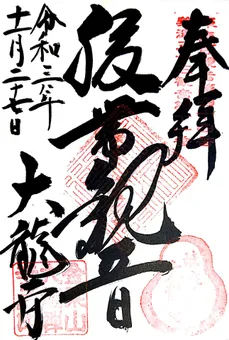 奉拝
腹帯観音
大龍寺
令和三年
十一月二十七日